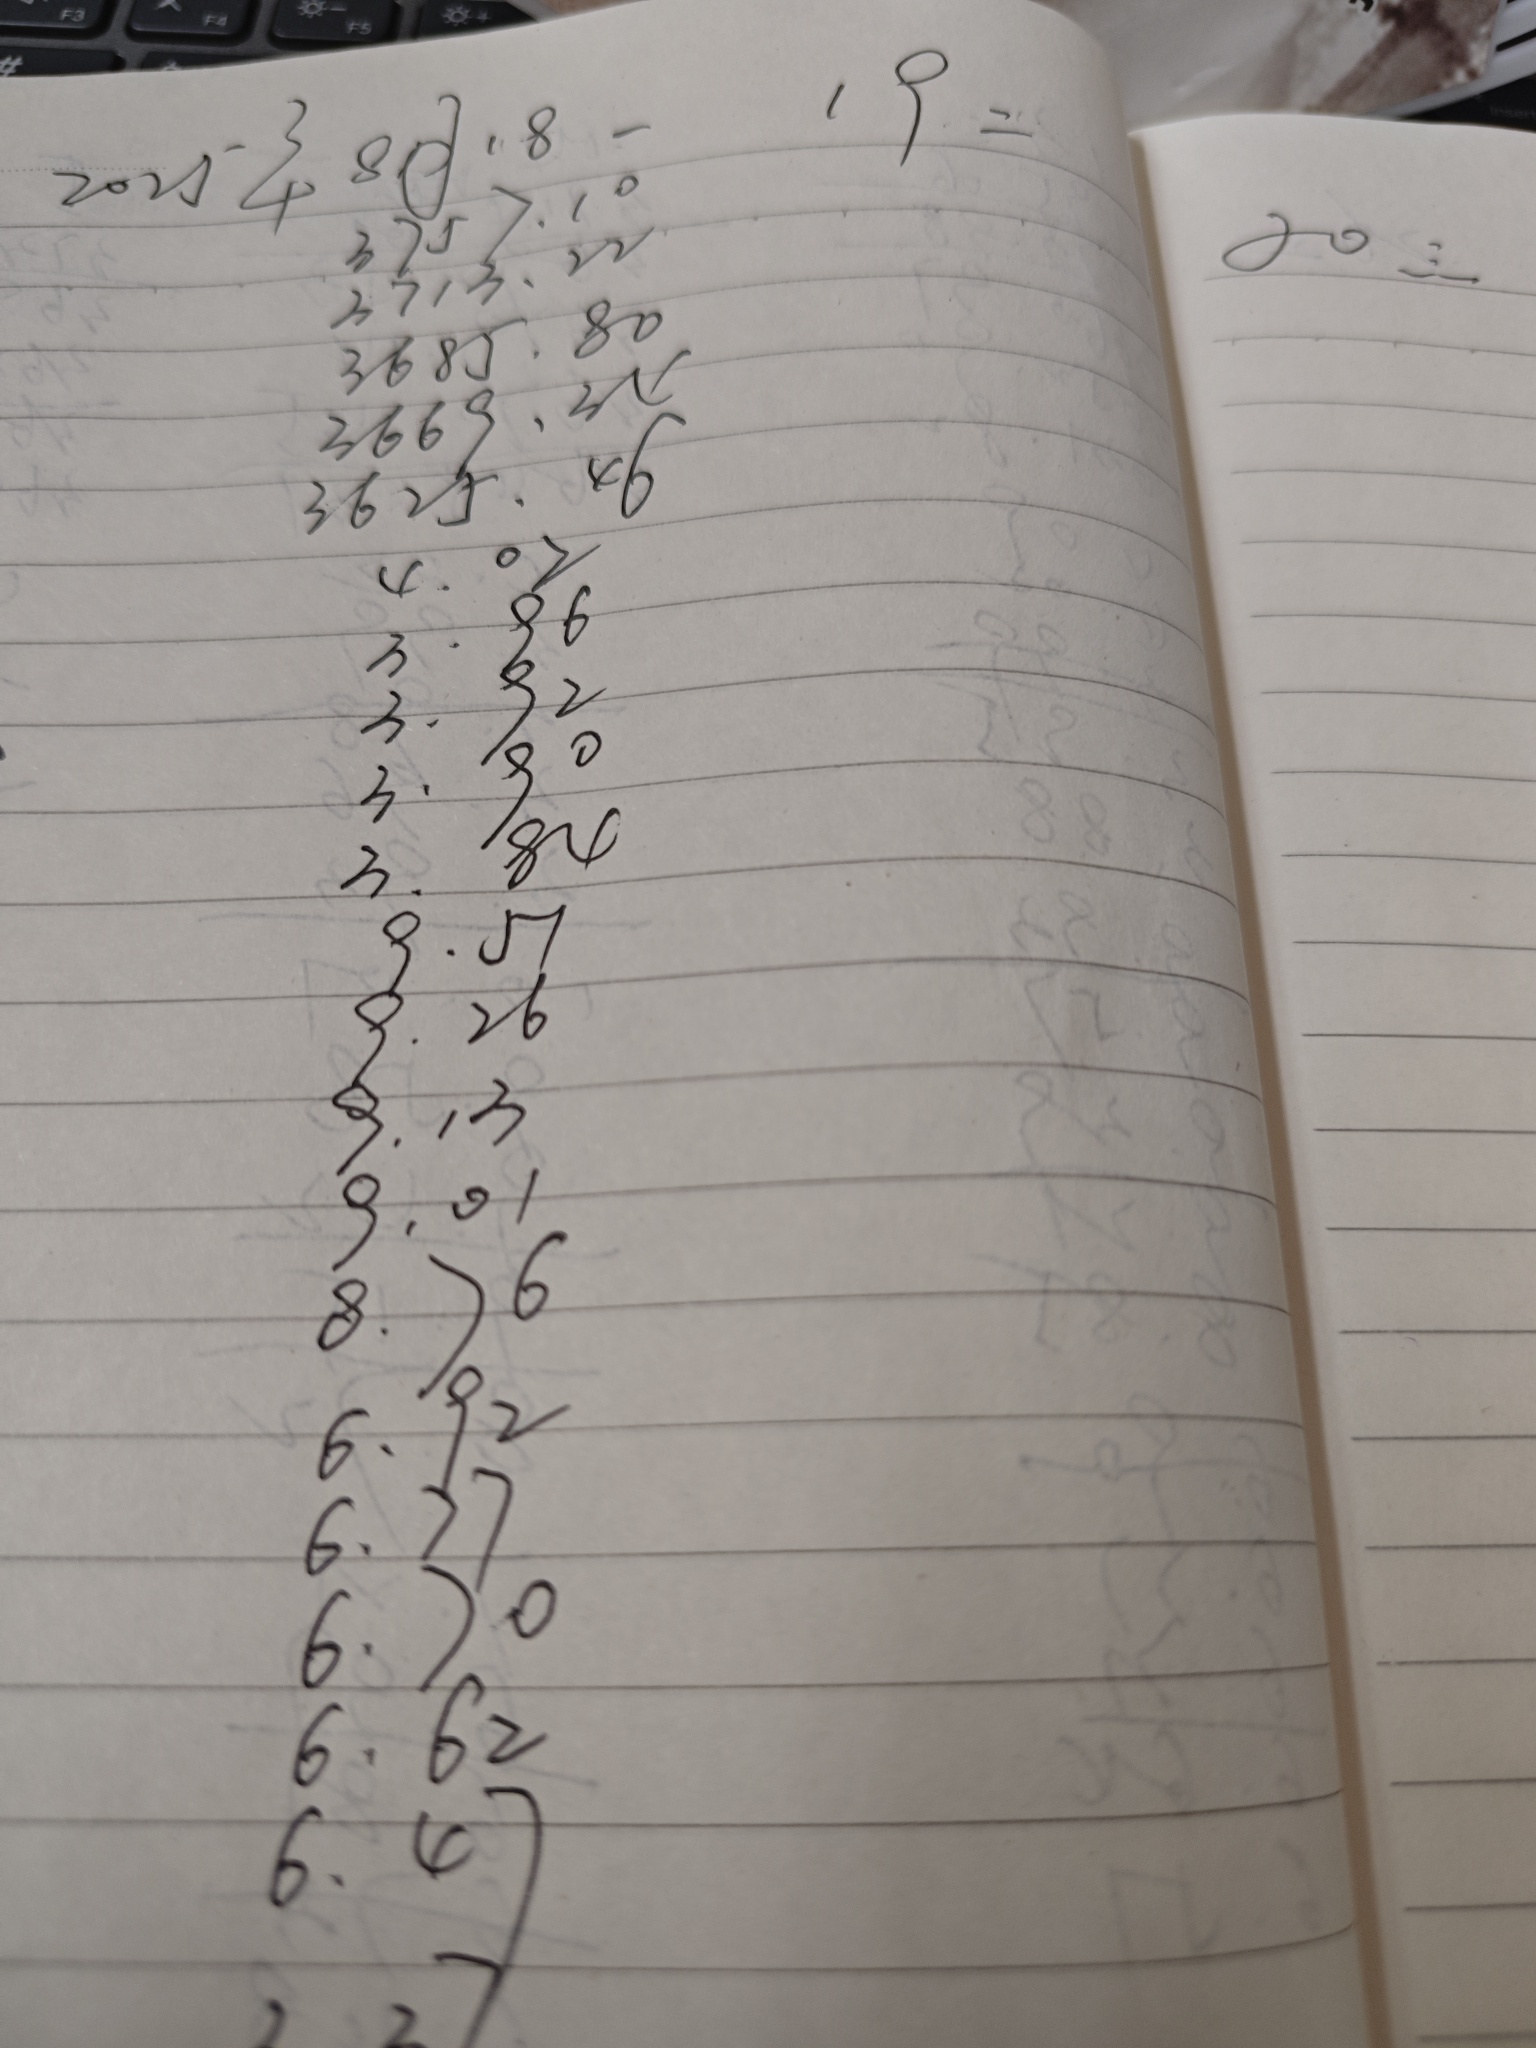 F3 F4 F5
#
2025年 8月.18 一 19 二 20 三
3757.10
3713.22
3685.80
3669.35
3625.46
4.02
3.96
3.92
3.90
3.84
9.57
9.26
9.13
9.01
8.76
6.92
6.77
6.70
6.62
6.47